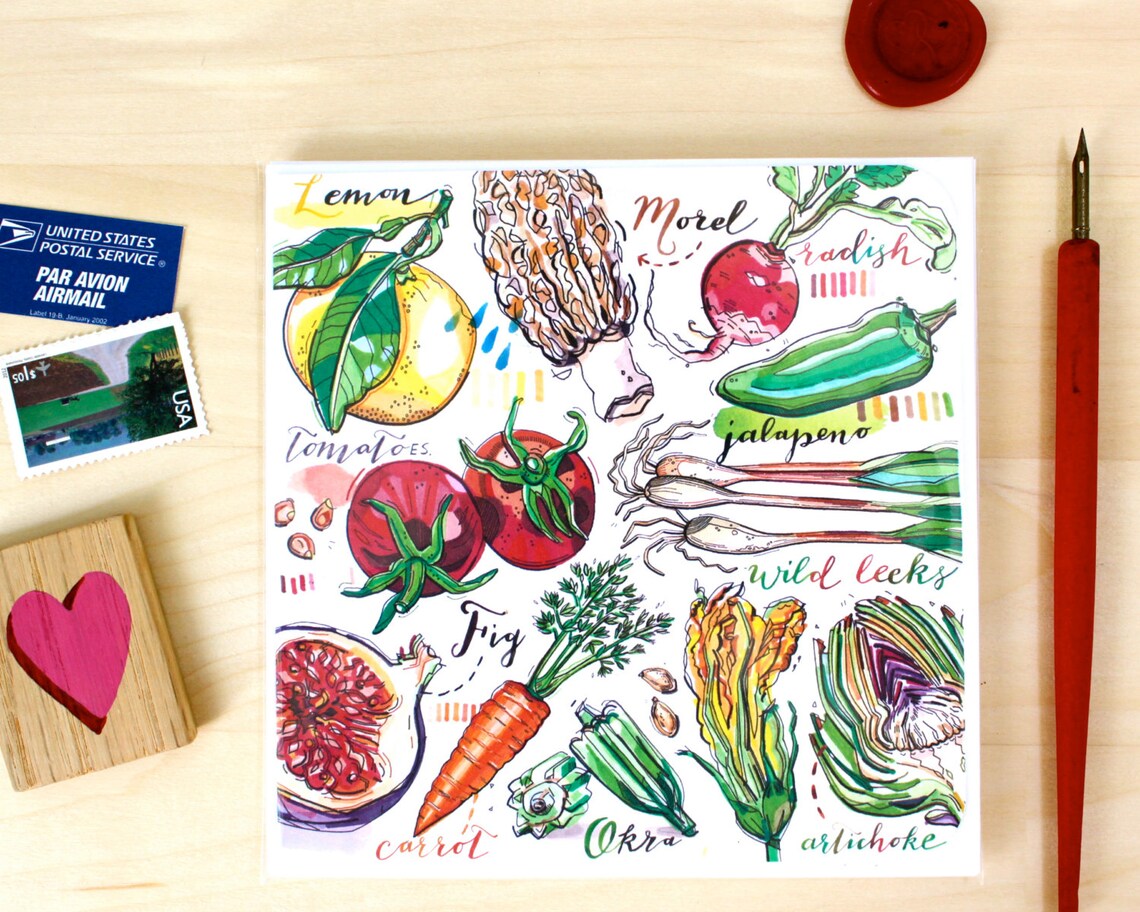 Lemon
Morel
radish
UNITED STATES
POSTAL SERVICE®
PAR AVION
AIRMAIL
Label 19-B, January 2002
USA
jalapeno
tomatoES.
wild leeks
Fig
carrot
Okra
artichoke